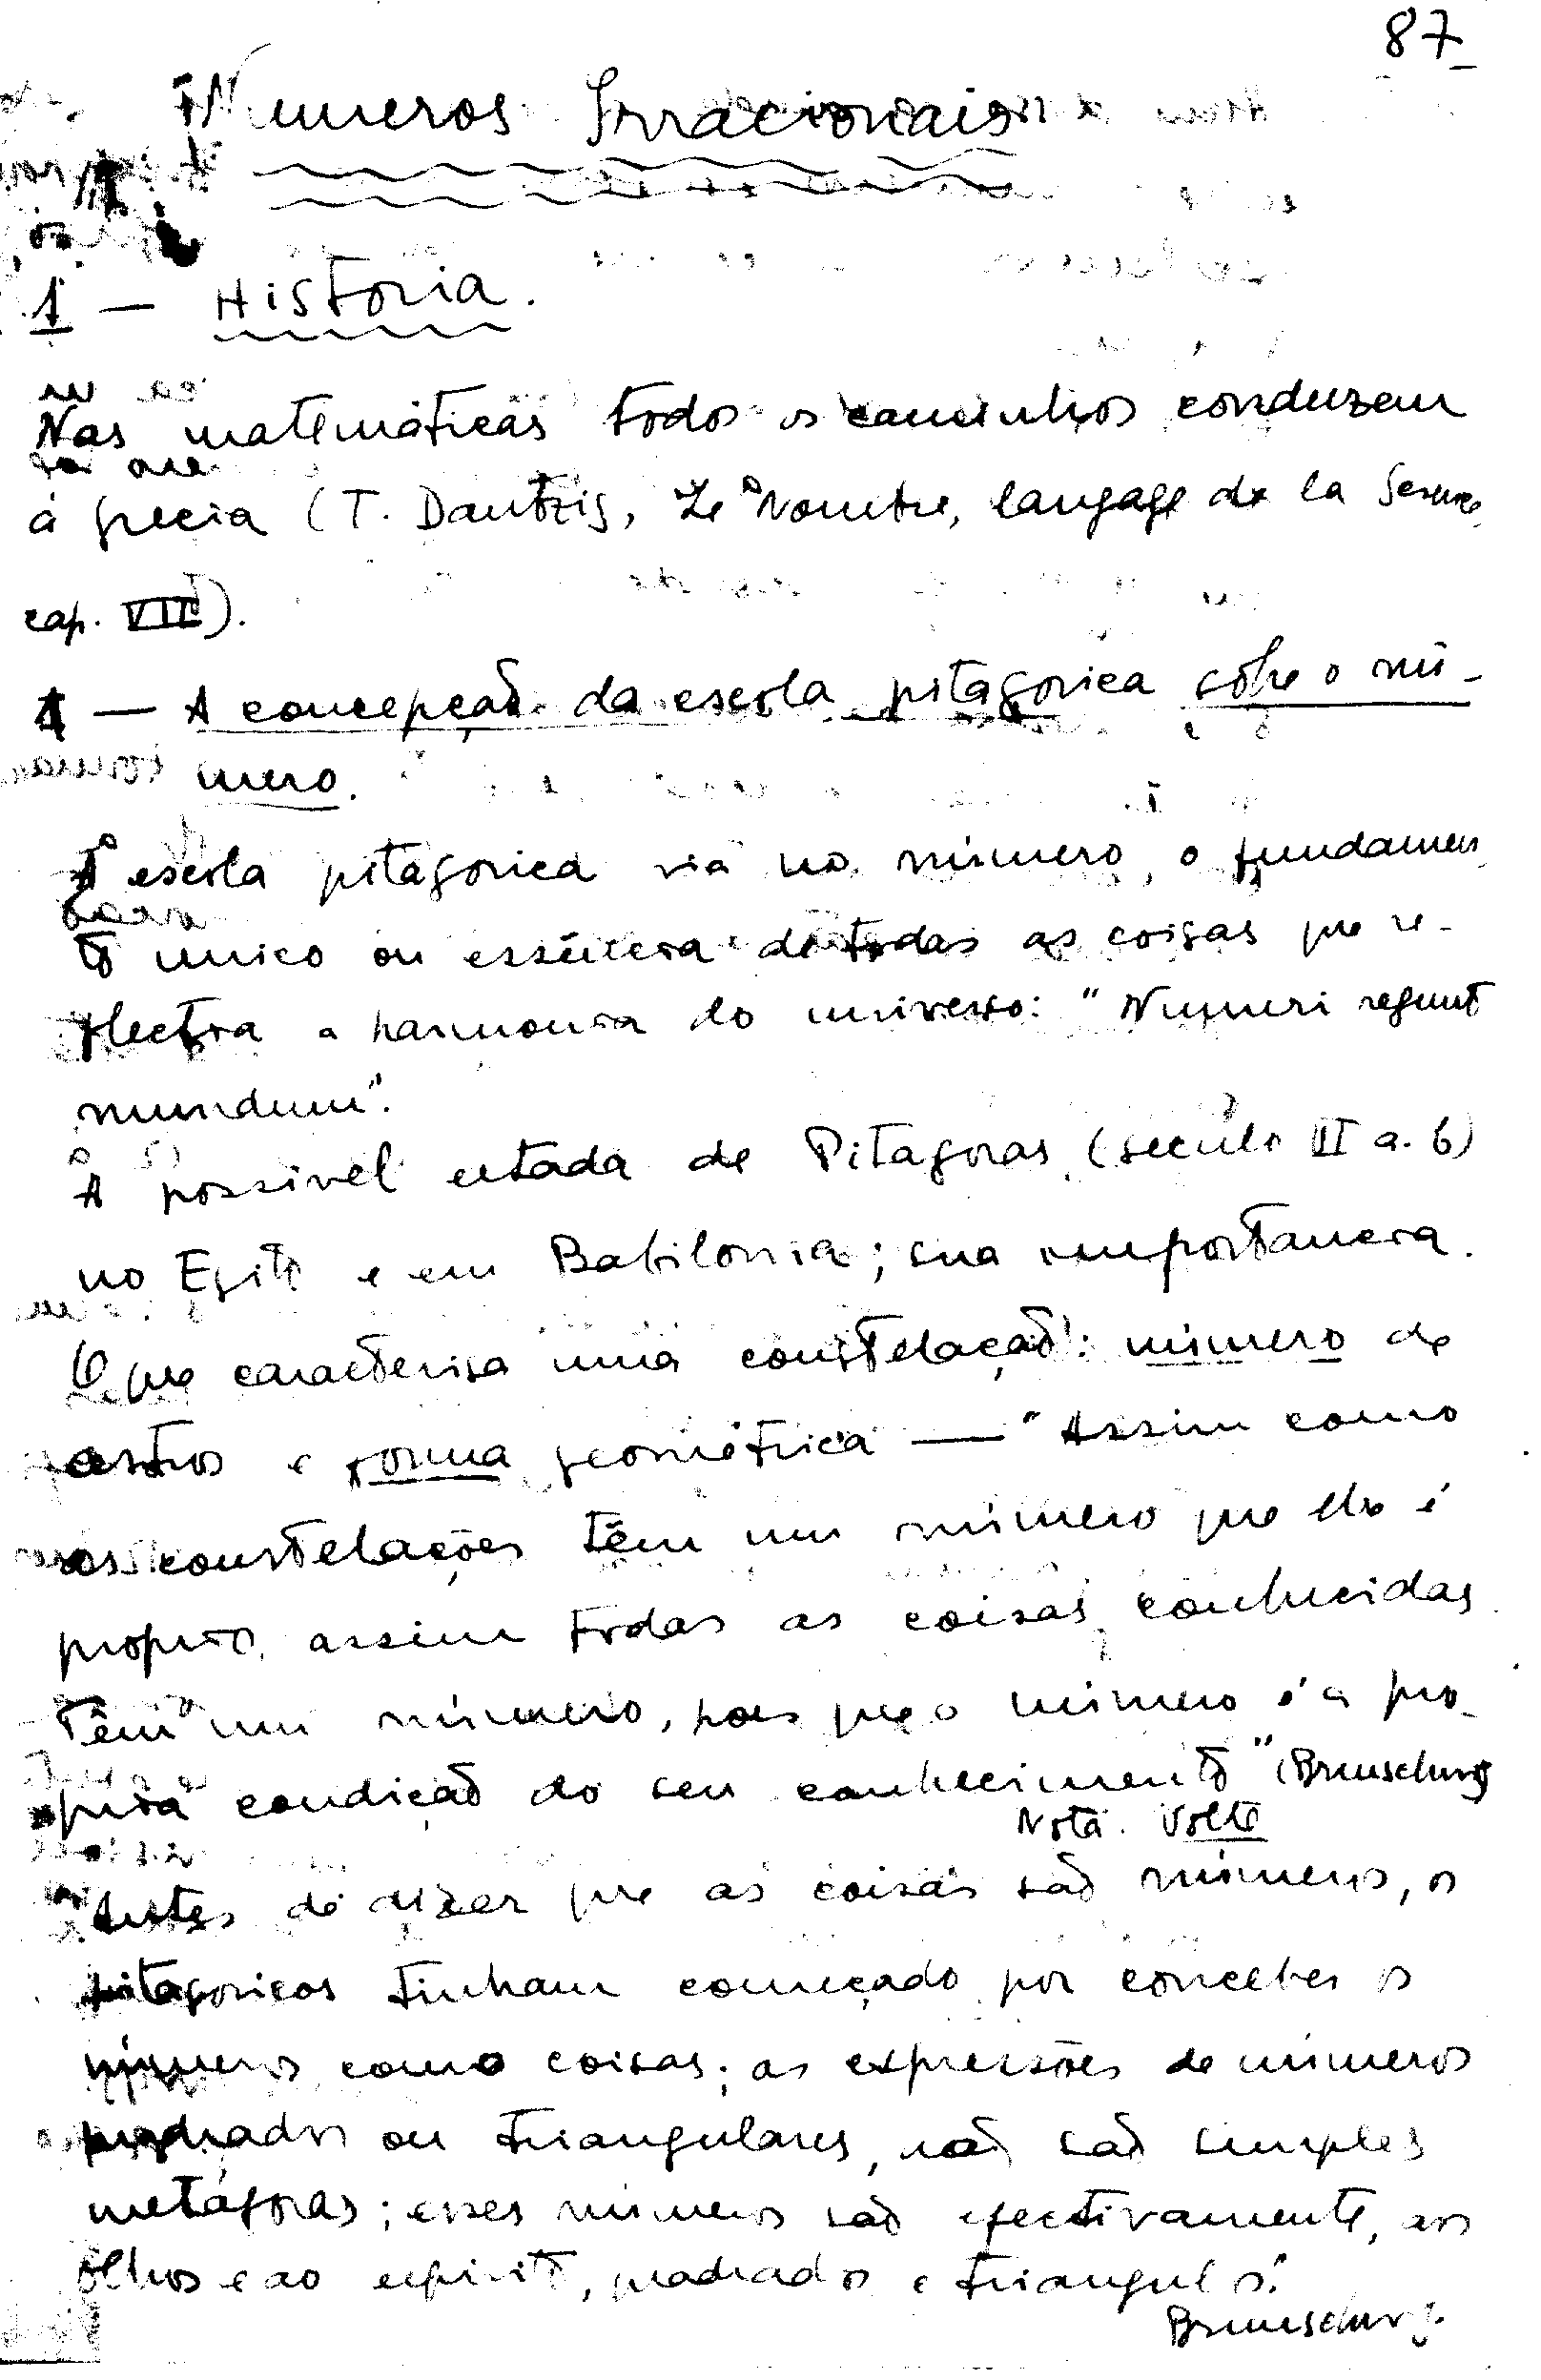 87
Numeros Irracionais
1 — Historia.
Nas matemáticas todos os caminhos conduzem
á Grecia (T. Dantzig, Le Nombre, langage de la Science,
cap. VII).
1 — A concepção da escola pitagorica sôbre o nú-
mero.
A escola pitagorica via no número, o fundamen
to unico ou essência de todas as coisas que re-
flectia a harmonia do universo: "Numeri regunt
mundum".
A possivel estada de Pitagoras (seculo VI a. C)
no Egito e em Babilonia; sua importancia.
O que caracterisa uma constelação: número de
astros e forma geométrica — "Assim como
as constelações têm um número que lhe é
proprio, assim todas as coisas conhecidas
têm um número, pois que o número é a pro-
pria condição do seu conhecimento" (Brunschwig
Nota. Volte
Antes de dizer que as coisas são números, os
pitagoricos tinham começado por conceber os
números como coisas; as expressões de números
quadrados ou triangulares, não são simples
metáforas; esses números são efectivamente, aos
olhos e ao espirito, quadrados e triangulos."
Brunschwig.